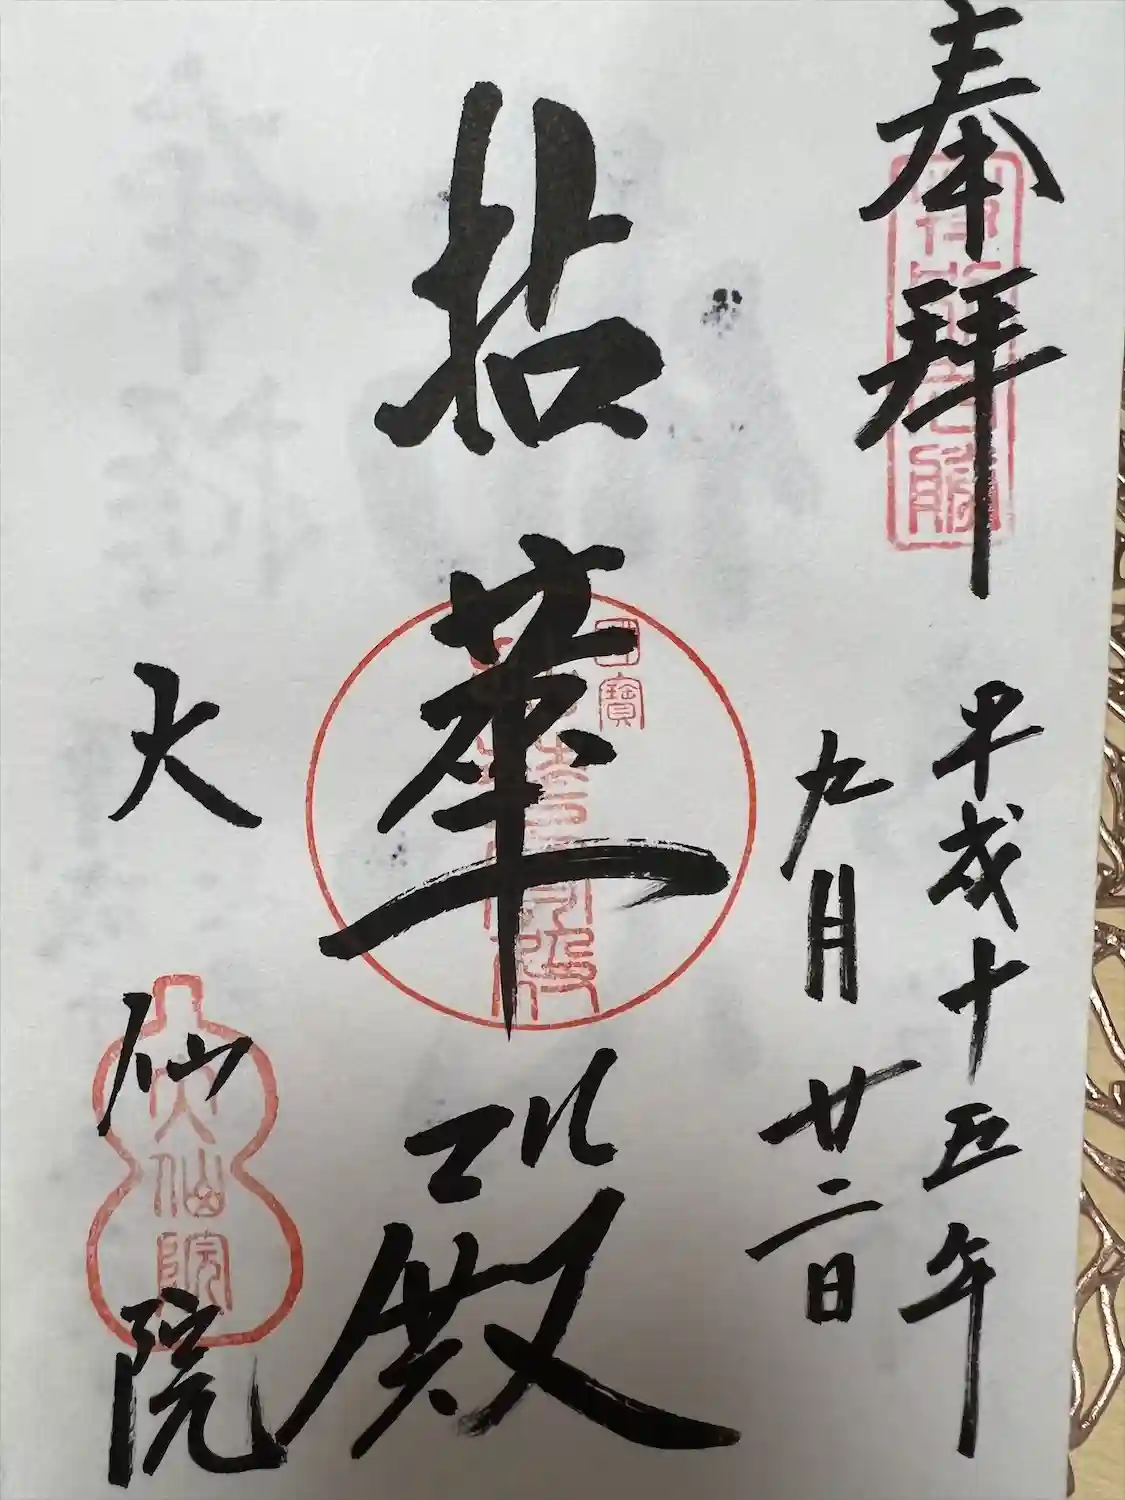 奉拝
平成十五年
九月廿二日
拈華殿
大仙院
国寳
大仙院